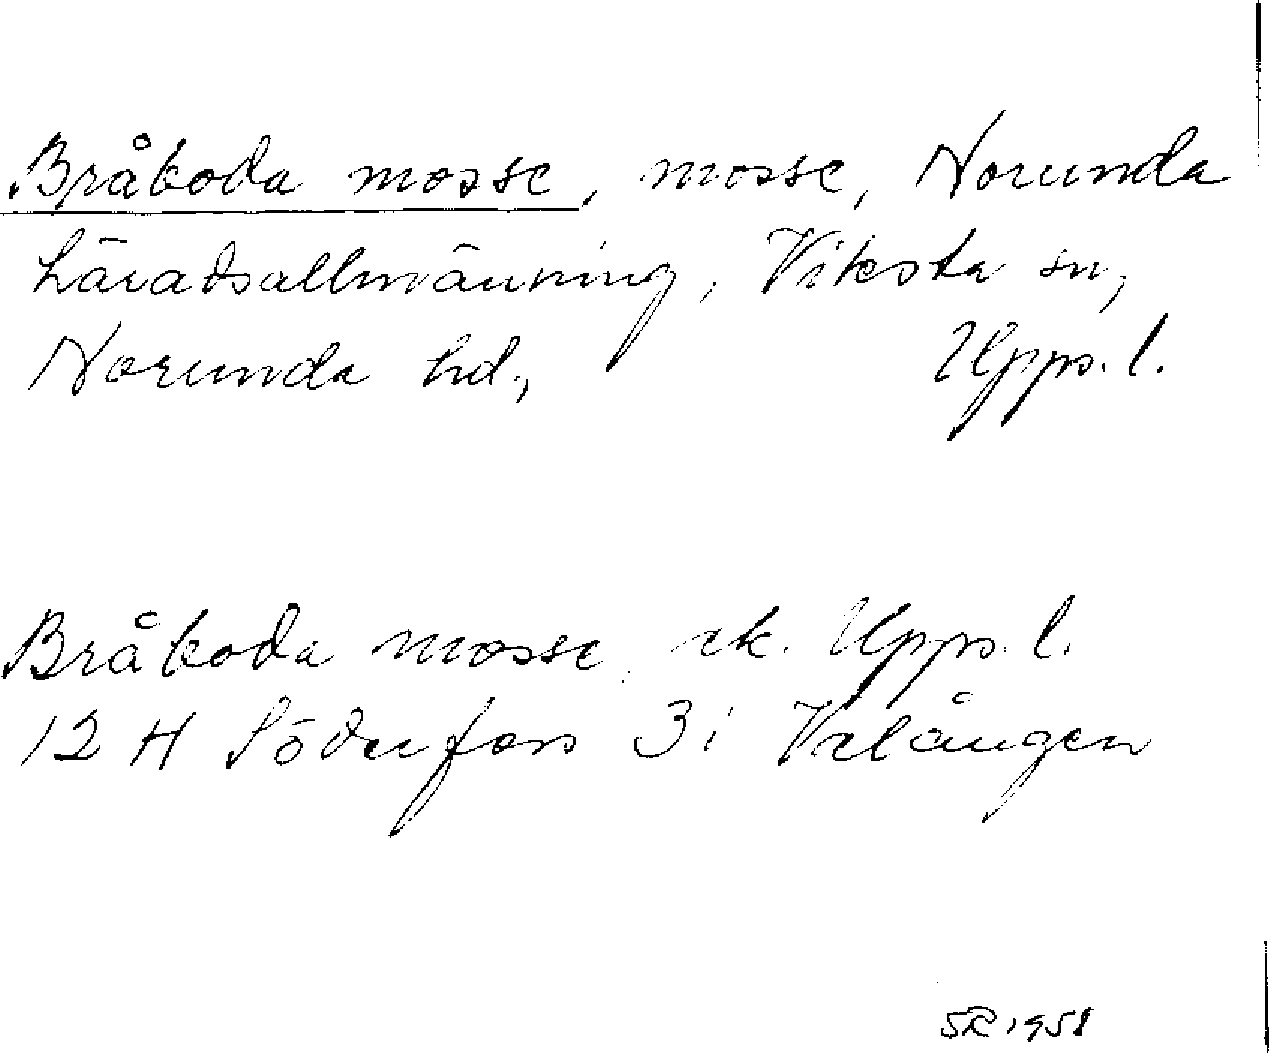 Bråboda mosse, mosse, Norunda
häradsallmänning, Viksta sn,
Norunda hd., Upps. l.
Bråboda mosse, ek. Upps. l.
12 H Söderfors 3 i Velången
SR 1958